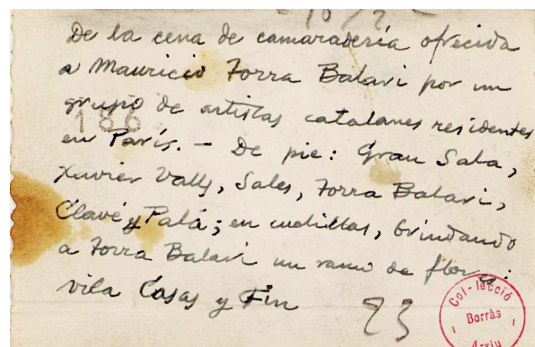 De la cena de camaradería ofrecida
a Mauricio Torra Balari por un
grupo de artistas catalanes residentes
186
en París. - De pie: Grau Sala,
Xavier Valls, Sales, Torra Balari,
Clavé y Palá; en cuclillas, brindando
a Torra Balari un ramo de flores:
Vila Casas y Fín
93
Col·lecció
Borràs
Arxiu